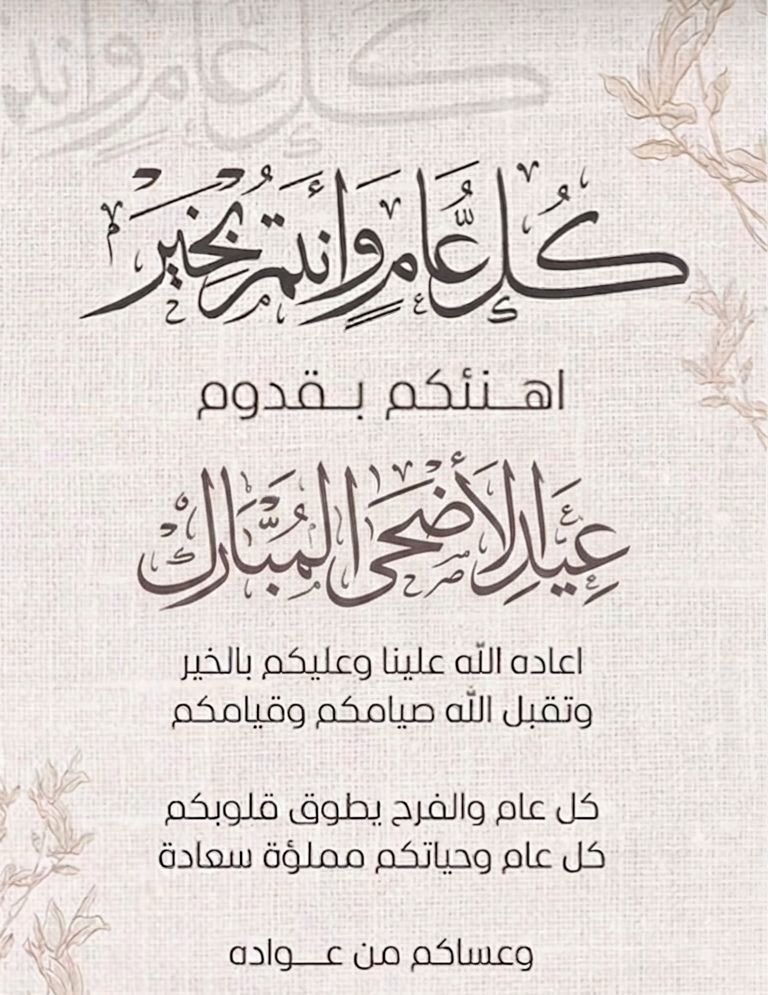 كل عام وانتم
كُل عَّامٍ وَأنتم بِخَيْر
اهـنئكم بـقدوم
عِيدَ الأَضْحَى المُبَّارك
اعاده الله علينا وعليكم بالخير
وتقبل الله صيامكم وقيامكم
كل عام والفرح يطوق قلوبكم
كل عام وحياتكم مملؤة سعادة
وعساكم من عـواده